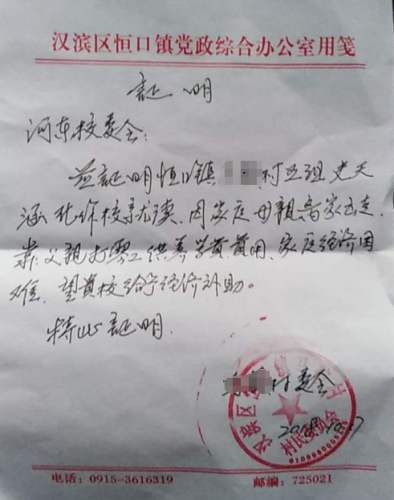 汉滨区恒口镇党政综合办公室用笺
証明
河东校委会:
兹証明恒口镇 村五组史天
涵在你校就读,因家庭母親离家出走,
靠父親打零工供养学费费用、家庭经济困
难,望贵校给予经济补助。
特此証明.
村委会
村民委员会
电话:0915-3616319 邮编:725021